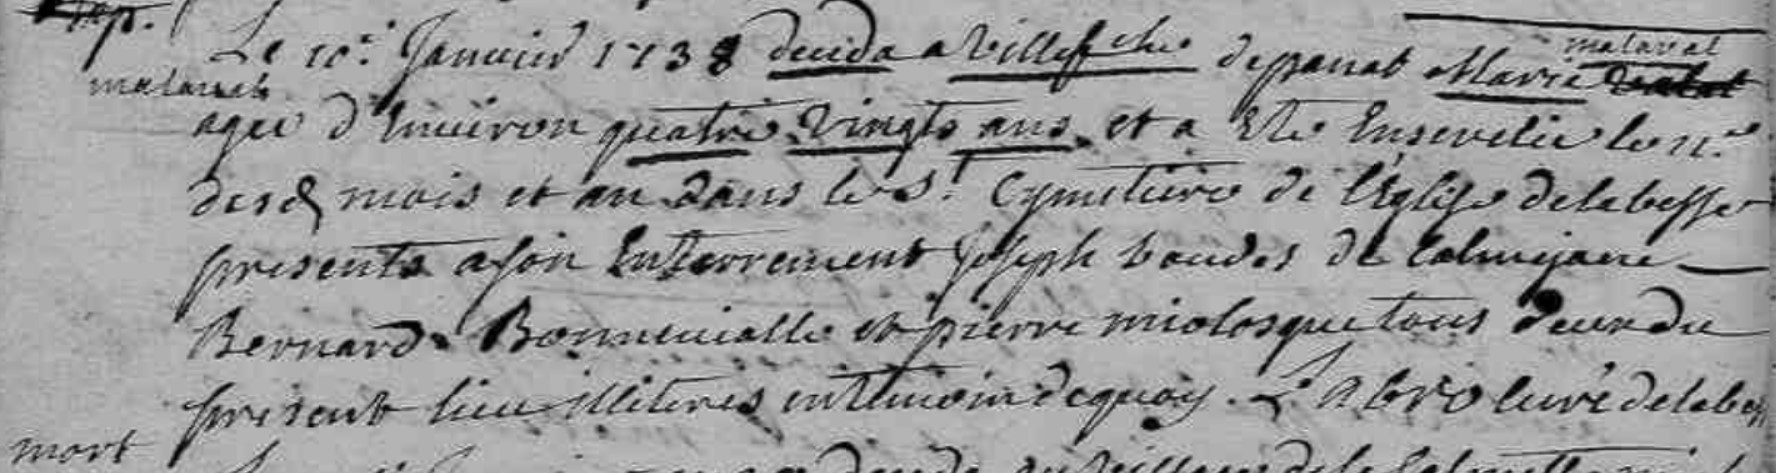 sep.
malaval
Le 10.e Janvier 1738 deceda a Villefche de panat Marie malaval
agée d'Environ quatre Vingts ans et a Eté Ensevelie le 11.e
desd mois et an dans le St Cymetiere de l'Eglise de la besse
presents a son Enterrement Joseph boudes de Calmejane
Bernard Bonneviale et pierre miolosque tous deux du
present lieu illiteres en temoin de quoy. L Abro curé de la bes
mort